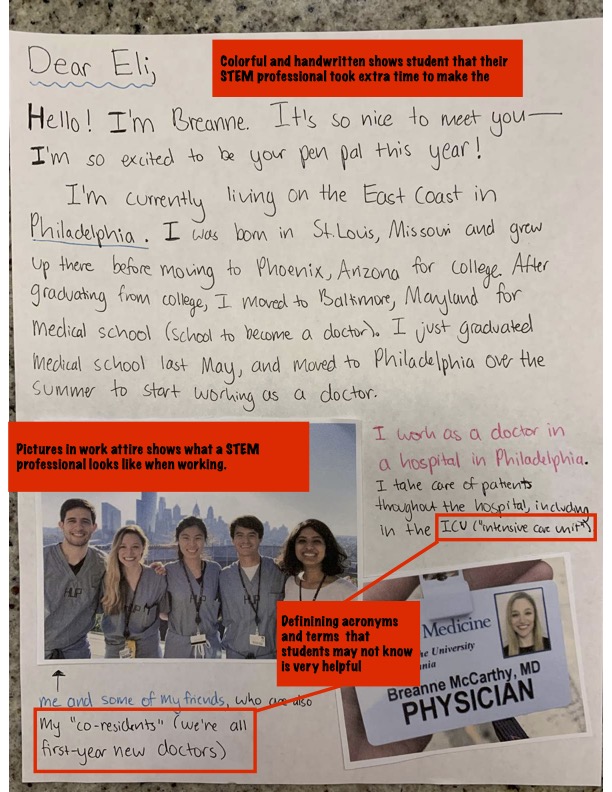 Dear Eli,
Colorful and handwritten shows student that their
STEM professional took extra time to make the
Hello! I'm Breanne. It's so nice to meet you—
I'm so excited to be your pen pal this year!
I'm currently living on the East Coast in
Philadelphia. I was born in St. Louis, Missouri and grew
up there before moving to Phoenix, Arizona for college. After
graduating from college, I moved to Baltimore, Maryland for
medical school (school to become a doctor). I just graduated
medical school last May, and moved to Philadelphia over the
summer to start working as a doctor.
Pictures in work attire shows what a STEM
professional looks like when working.
I work as a doctor in
a hospital in Philadelphia.
I take care of patients
thoughout the hospital, including
in the ICU ("intensive care unit")
HUP
HUP
HUP
HUP
Definining acronyms
and terms that
students may not know
is very helpful
Medicine
University
Breanne McCarthy, MD
PHYSICIAN
me and some of my friends, who are also
My "co-residents" (we're all
first-year new doctors)